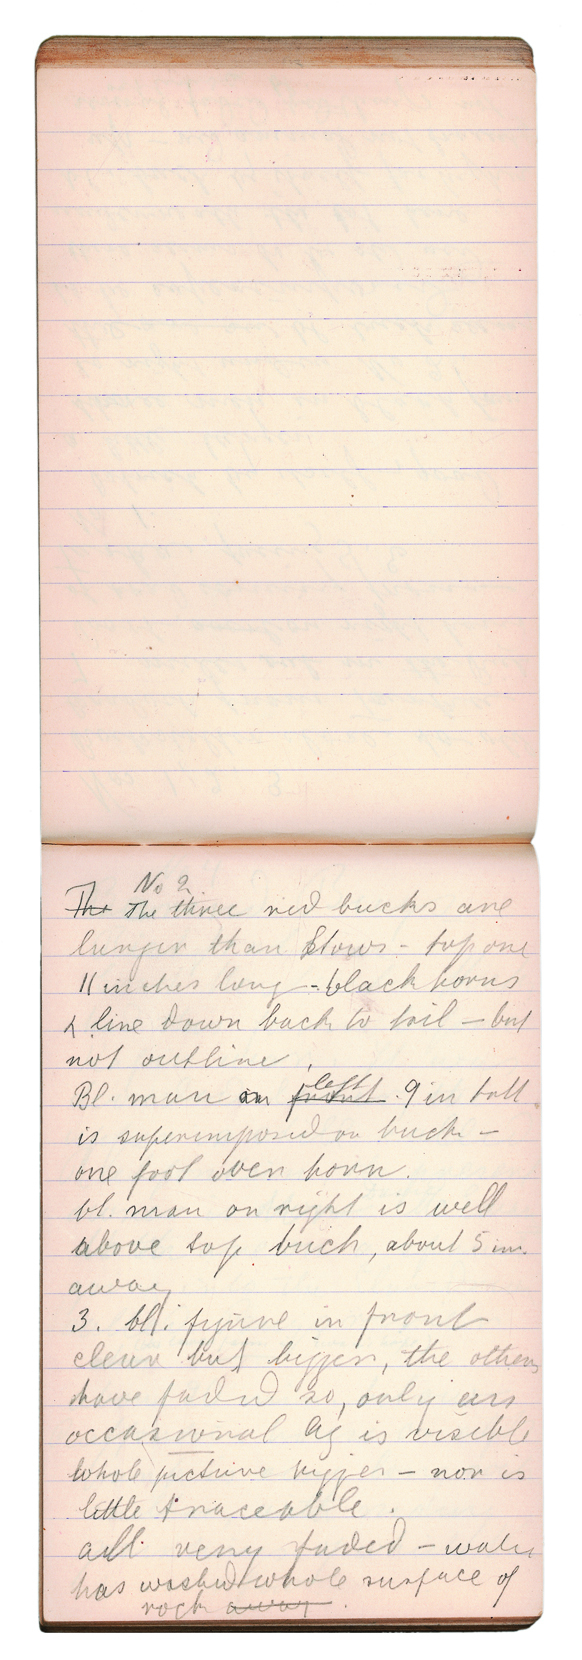 No 2
The The three red bucks are
larger than Stows - top one
11 inches long - black horns
& line down back to tail - but
not outline.
Bl. man on front left. 9 in tall
is superimposed on buck -
one foot over horn.
bl. man on right is well
above top buck, about 5 in.
away
3. bl. figure in front
clear but bigger, the others
have faded so, only an
occasional leg is visible
whole picture bigger - nor is
little traceable.
all very faded - water
has washed whole surface of
rock away.